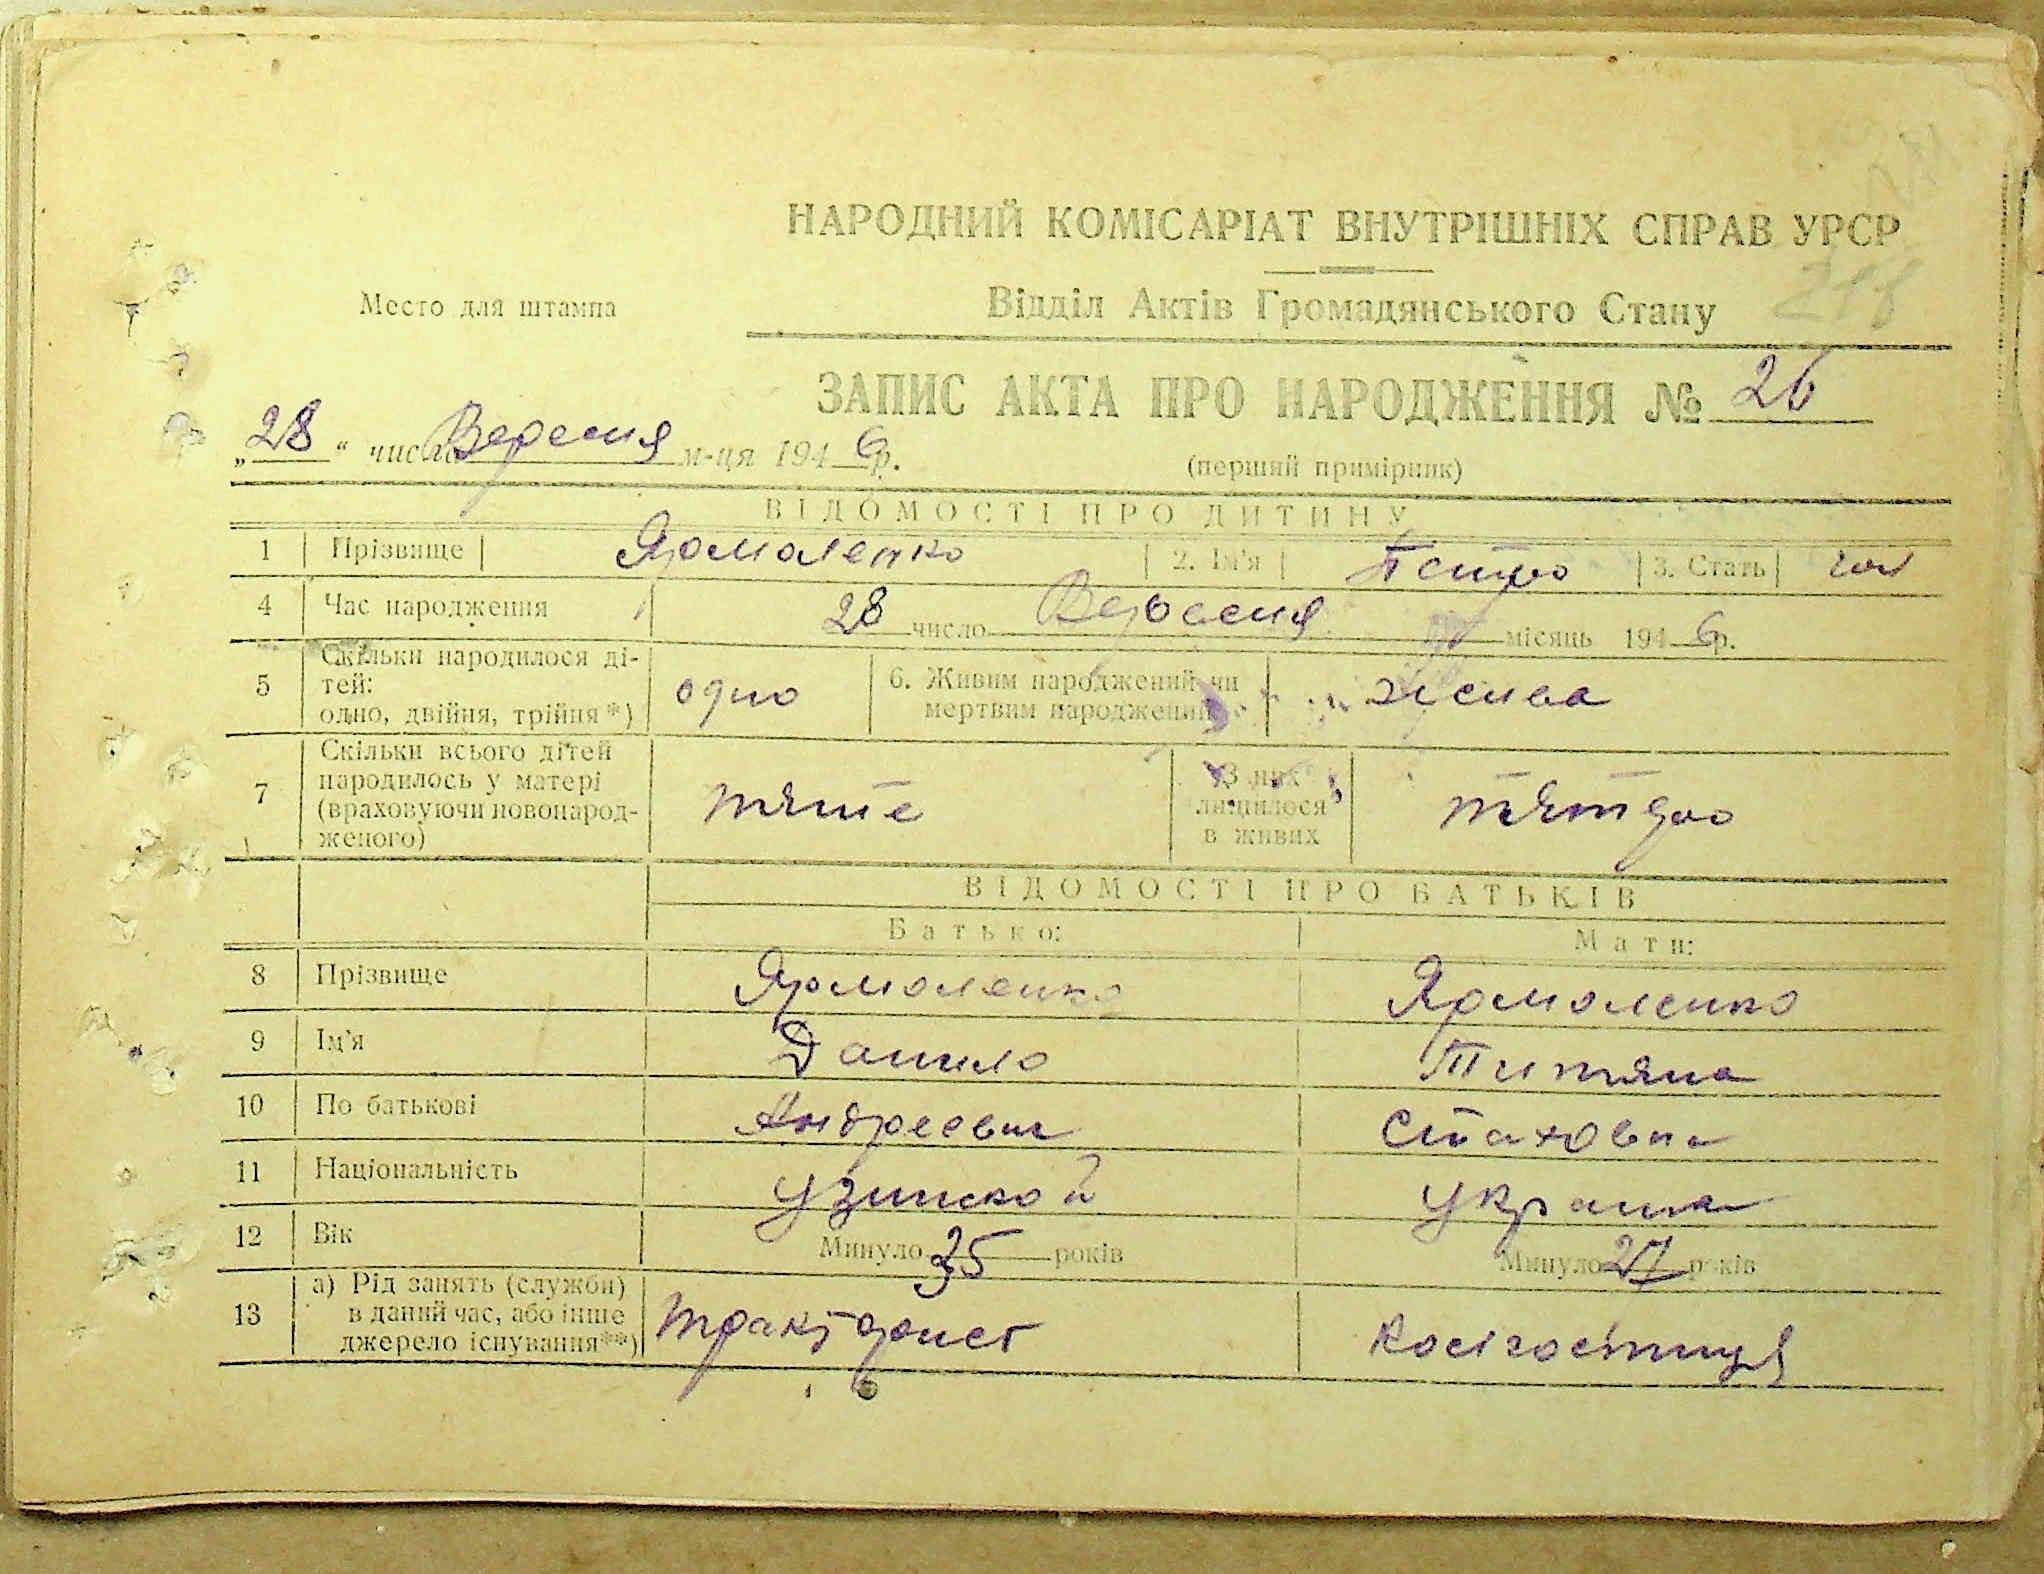 НАРОДНИЙ КОМІСАРІАТ ВНУТРІШНІХ СПРАВ УРСР
Место для штампа
Відділ Актів Громадянського Стану
ЗАПИС АКТА ПРО НАРОДЖЕННЯ № 26
„28“ число Вересня м-ця 1946 р.
(перший примірник)
ВІДОМОСТІ ПРО ДИТИНУ
1 Прізвище Ярмоленко 2. Ім'я Петро 3. Стать чол
4 Час народження 28 число Вересня місяць 1946 р.
5 Скільки народилося ді-
тей:
одно, двійня, трійня*) одно
6. Живим народжений чи
мертвим народжений жива
7 Скільки всього дітей
народилось у матері
(враховуючи новонарод-
женого) пяте
З них
лишилося
в живих пятеро
ВІДОМОСТІ ПРО БАТЬКІВ
Батько: Мати:
8 Прізвище Ярмоленко Ярмоленко
9 Ім'я Данило Титяна
10 По батькові Андреевич Стаховна
11 Національність
12 Вік Минуло 35 років Минуло 27 років
13 а) Рід занять (служби)
в даний час, або інше
джерело існування**)